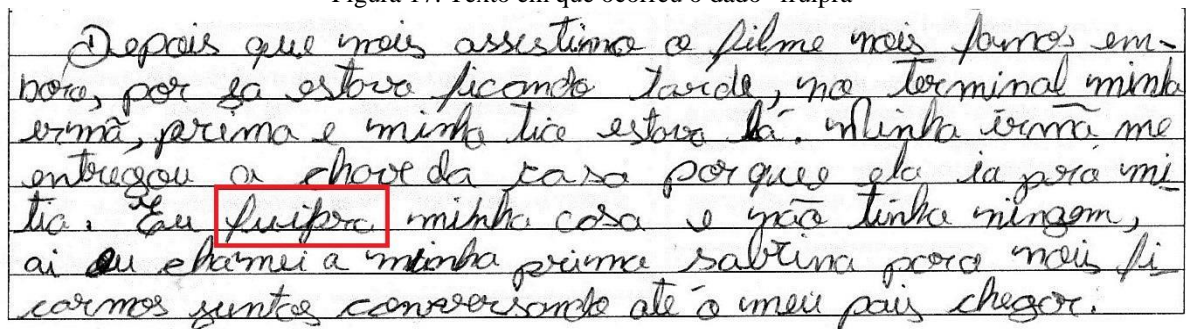 Figura 17: Texto em que ocorreu o dado "fruipra"
Depois que nois assistimo o filme nois fomos em-
bora, por ja estava ficando tarde, no terminal minha
irmã, prima e minha tia estava lá. Minha irmã me
entregou a chave da casa porque ela ia pra mi
tia. Eu fuipra minha casa e não tinha ningem,
ai eu chamei a minha prima sabrina para nois fi
carmos juntos conversando até o meu pais chegar.